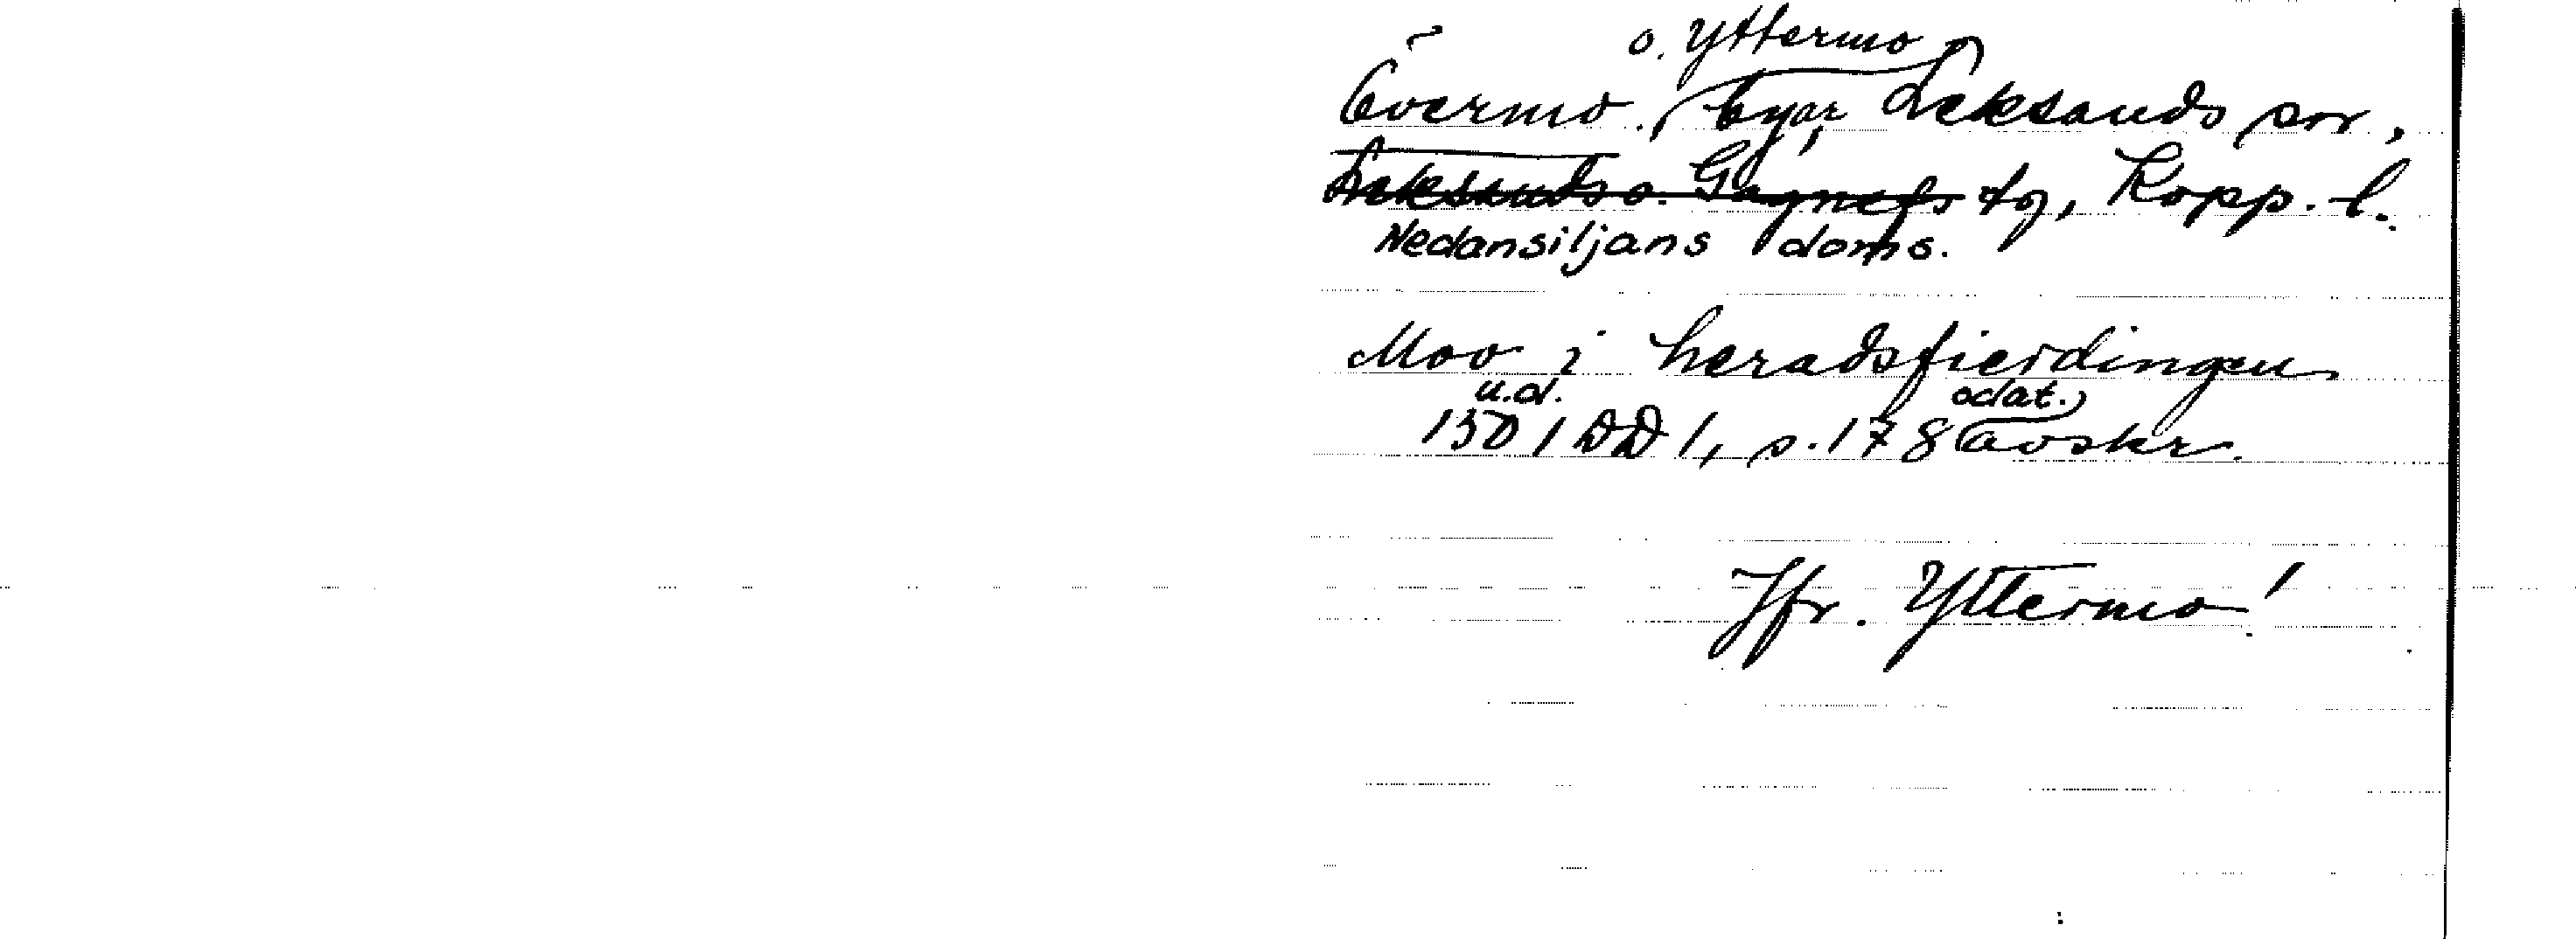 o. Yttermo
Övermo, byar, Leksands sn,
Leksands o. Gagnefs tg, Kopp. l.
Nedansiljans doms.
Moo i heradsfierdingen
u.d. odat.
1501 DD 1, s. 178 avskr.
Jfr. Yttermo!